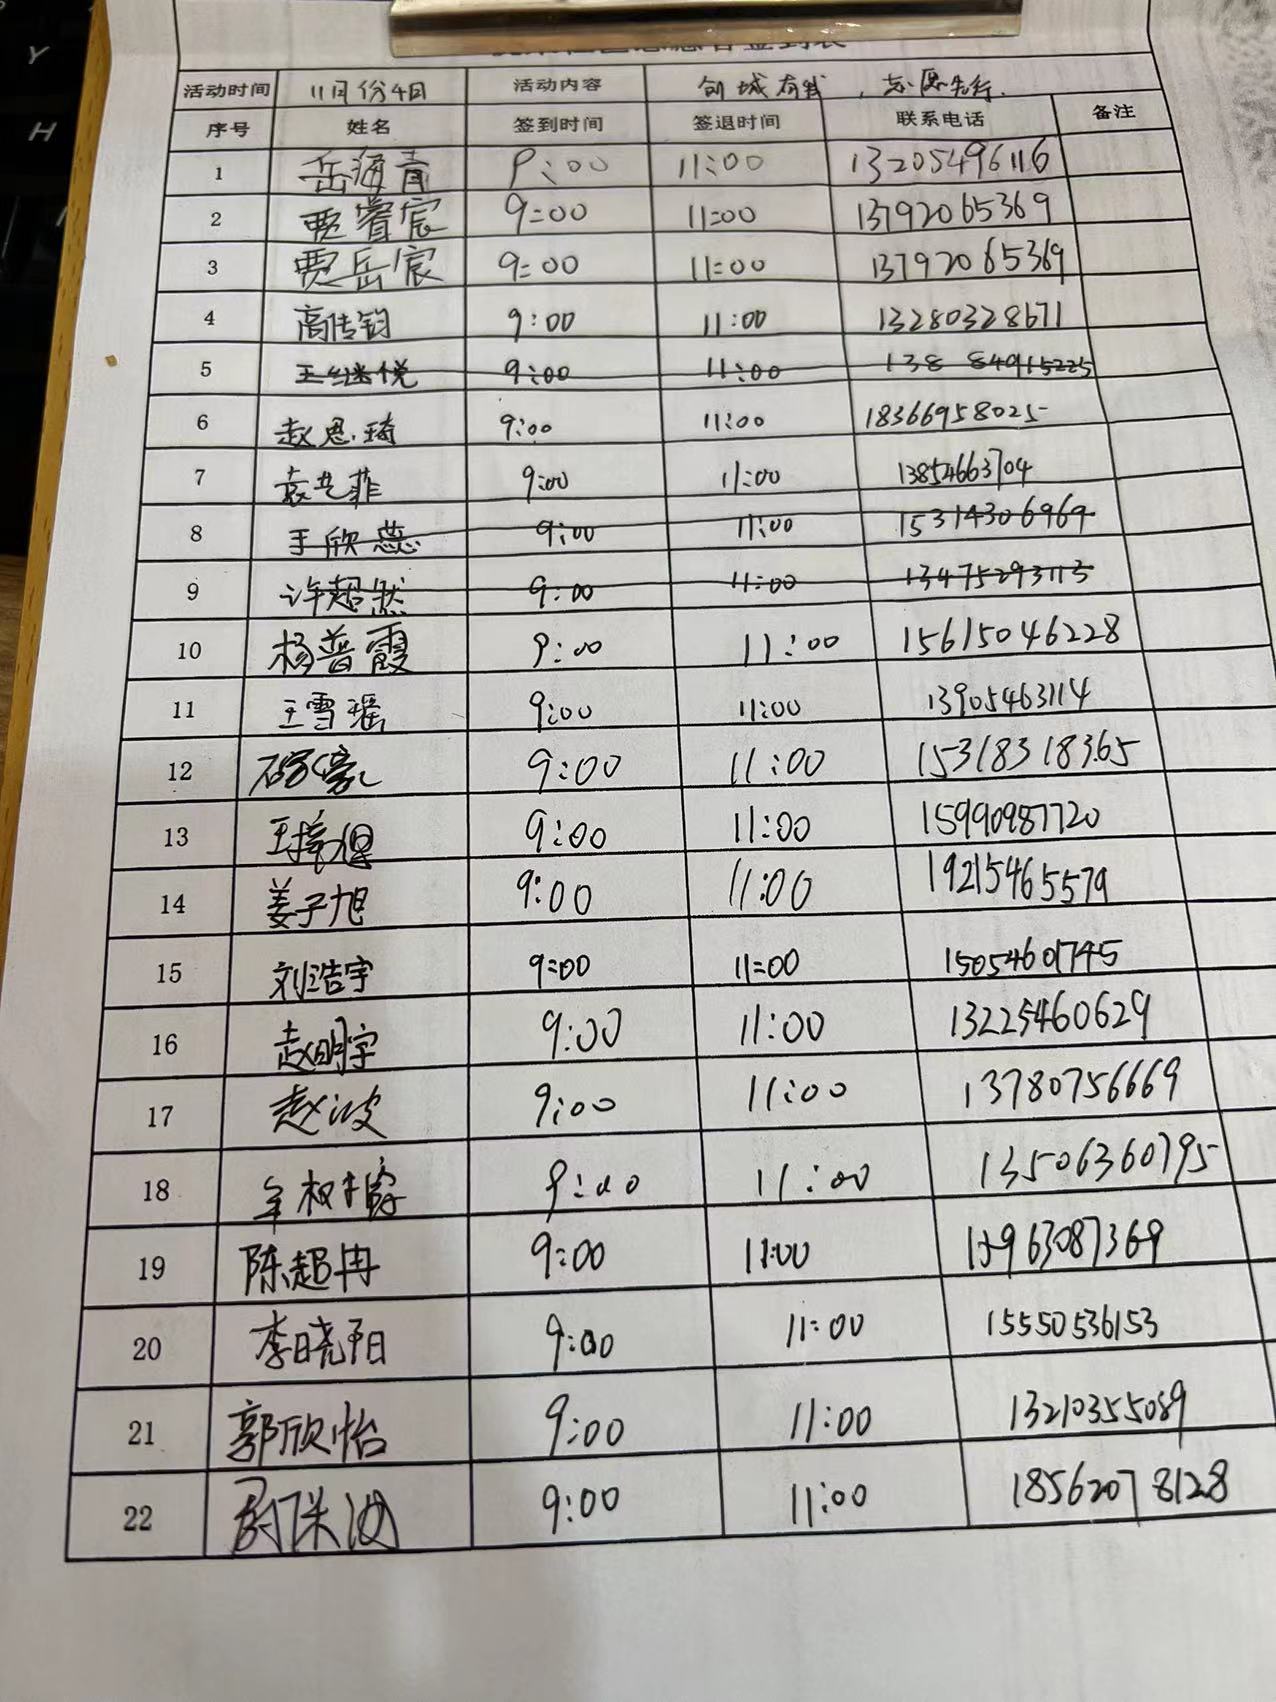 Y
H
活动时间 11月份4日 活动内容 创城有我，志愿先行.
序号 姓名 签到时间 签退时间 联系电话 备注
1 岳海青 9:00 11:00 13205496116
2 贾睿宸 9:00 11:00 13792065369
3 贾岳宸 9:00 11:00 13792065369
4 高传钧 9:00 11:00 13280328671
5 王继悦 9:00 11:00 138 84915225
6 赵思琦 9:00 11:00 18366958025
7 袁艺菲 9:00 11:00 13854663704
8 于欣蕊 9:00 11:00 15314306969
9 许超然 9:00 11:00 13475293113
10 杨普霞 9:00 11:00 15615046228
11 王雪瑶 9:00 11:00 13905463114
12 9:00 11:00 15318318365
13 9:00 11:00 15990987720
14 姜子旭 9:00 11:00 19215465579
15 刘浩宇 9:00 11:00 15054601745
16 赵明宇 9:00 11:00 13225460629
17 赵波 9:00 11:00 13780756669
18 9:00 11:00 13506360795
19 陈超冉 9:00 11:00
20 李晓阳 9:00 11:00 15550536153
21 郭欣怡 9:00 11:00 13210355089
22 9:00 11:00 18562078128